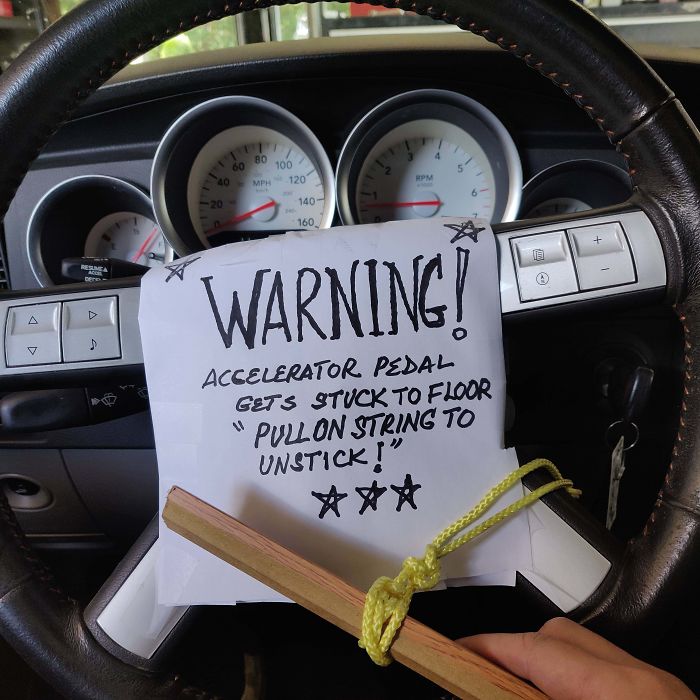 20 40 60 80 100 120 140 160
MPH
1 2 3 4 5 6 7
RPM
RESUME
ACCEL
WARNING!
ACCELERATOR PEDAL
GETS STUCK TO FLOOR
"PULL ON STRING TO
UNSTICK!"